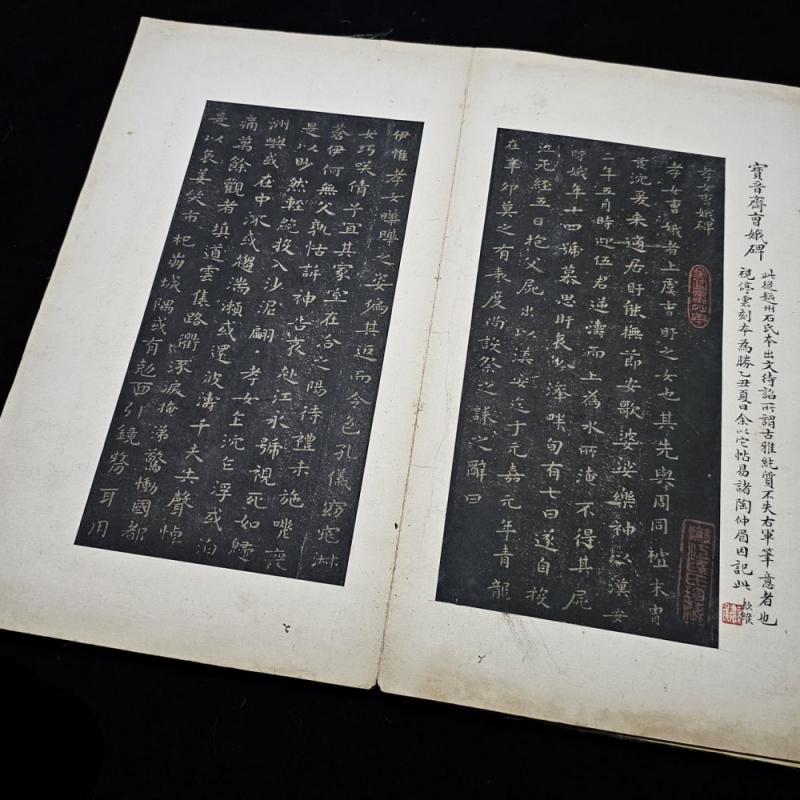 寶晉齋曹娥碑
此從越州石氏本出文待詔所謂古雅純質不失右軍筆意者也
視停雲刻本為勝乙丑夏日余以它帖易諸陶仲眉因記此
孝女曹娥碑
孝女曹娥者上虞曹盱之女也其先與周同祖末胄
荒沈爰来適居盱能撫節安歌婆娑樂神以漢安
二年五月時迎伍君逆濤而上為水所淹不得其屍
時娥年十四號慕思盱哀吟澤畔旬有七日遂自投
江死經五日抱父屍出以漢安迄于元嘉元年青龍
在辛卯莫之有表度尚設祭之誄之辭曰
伊惟孝女曄曄之姿偏其返而令色孔儀窈窕淑
女巧咲倩兮宜其家室在合之陽待禮未施嗟喪
蒼伊何無父孰怙訴神告哀赴江永號視死如歸
是以眇然輕絕投入沙泥翩﹅孝女乍沉乍浮或泊
洲嶼或在中流或趨湍瀨或還波濤千夫失聲悼
痛萬餘觀者填道雲集路衢流淚掩涕驚慟國都
是以哀姜哭市杞崩城隅或有剋面引鏡剺耳用